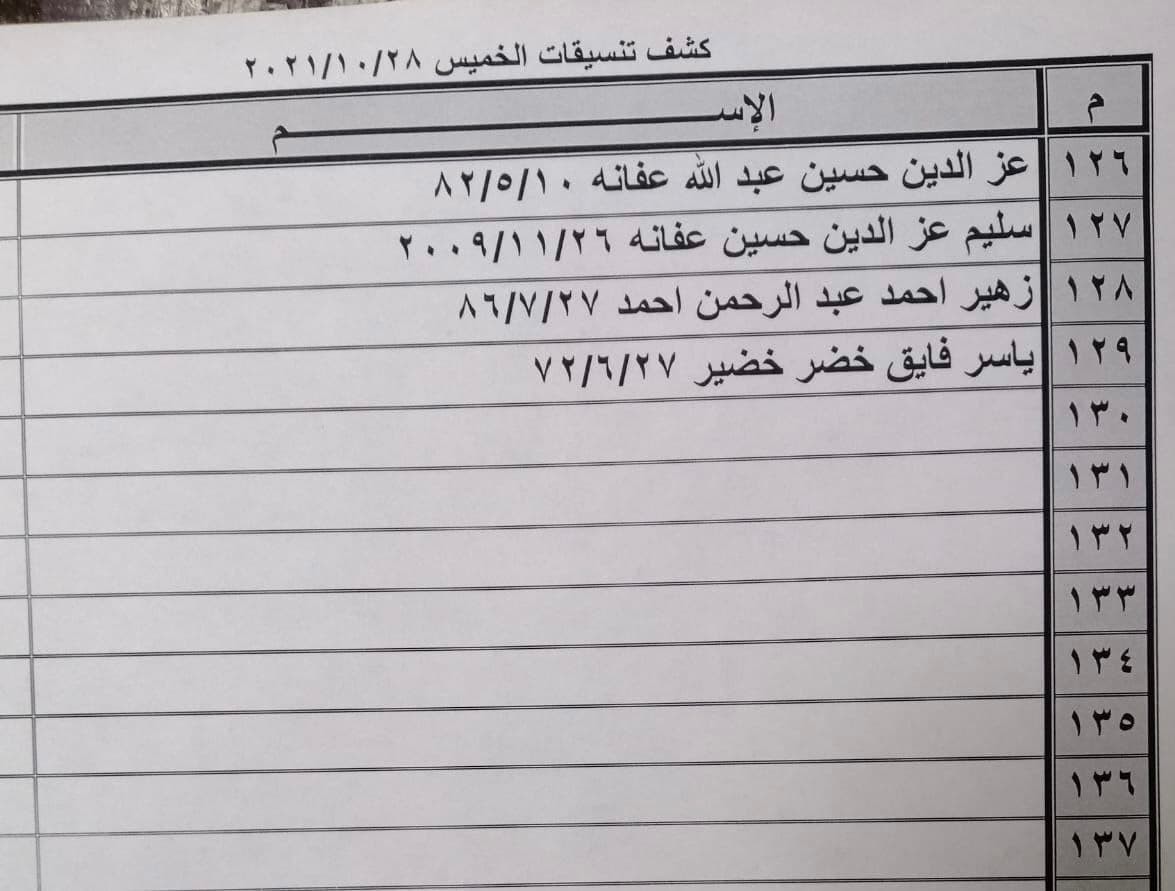 كشف تنسيقات الخميس ٢٠٢١/١٠/٢٨
م الإســـم
١٢٦ عز الدين حسين عبد الله عفانه ٨٢/٥/١٠
١٢٧ سليم عز الدين حسين عفانه ٢٠٠٩/١١/٢٦
١٢٨ زهير احمد عبد الرحمن احمد ٨٦/٧/٢٧
١٢٩ ياسر فايق خضر خضير ٧٢/٦/٢٧
١٣٠
١٣١
١٣٢
١٣٣
١٣٤
١٣٥
١٣٦
١٣٧